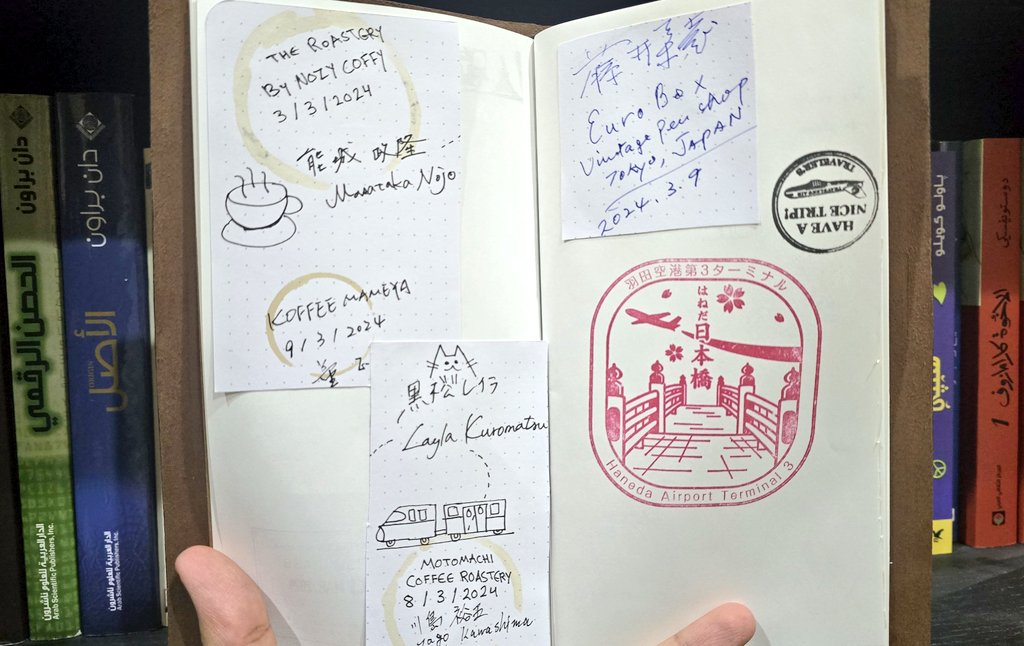 THE ROASTERY
By NOZY COFFY
3/3/2024
能城 政隆
Masataka Nojo
KOFFEE MAMEYA
9/3/2024
黒松レイラ
Layla Kuromatsu
MOTOMACHI
COFFEE ROASTERY
8/3/2024
川島 裕
Kawashima
藤井
Euro Box
Vintage Pen shop
TOKYO, JAPAN
2024.3.9
TRAVELER'S
HAVE A
NICE TRIP!
羽田空港第3ターミナル
はねだ
日本橋
Haneda Airport Terminal 3
دان براون
الحصن الرقمي
الدار العربية للعلوم ناشرون
Arab Scientific Publishers, Inc.
دان براون
الأصل
الدار العربية للعلوم ناشرون
Arab Scientific Publishers, Inc.
باولو كويلو
دوستويفسكي
الاخوة كارامازوف 1